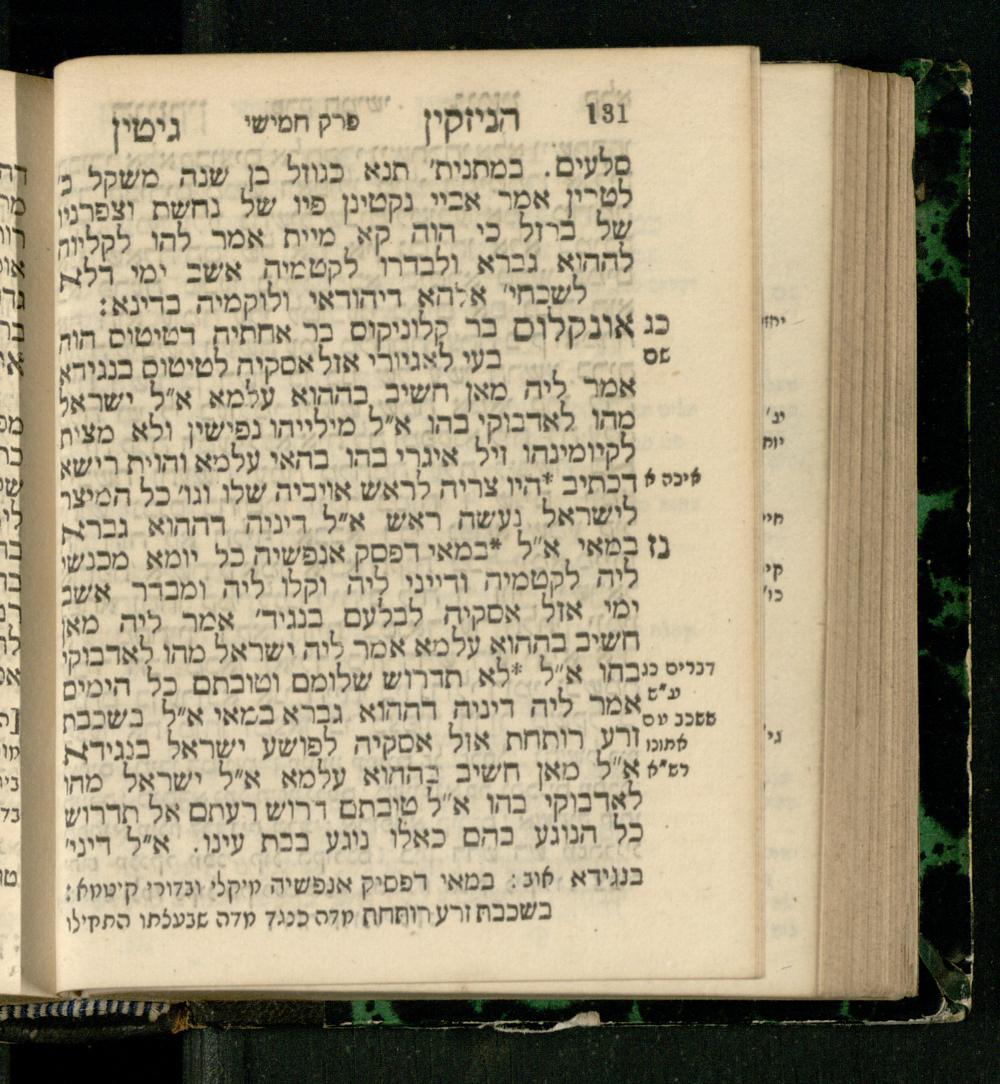 131 הניזקין פרק חמישי גיטין
סלעים. במתנית׳ תנא כגוזל בן שנה משקל ב׳
לטרין אמר אביי נקטינן פיו של נחשת וצפרניו
של ברזל כי הוה קא מיית אמר להו לקליוה
לההוא גברא ולבדרו לקטמיה אשב ימי דלא
לשכחי׳ אלהא דיהודאי ולוקמיה בדינא:
כג אונקלוס בר קלוניקוס בר אחתיה דטיטוס הוה
שם בעי לאגיורי אזל אסקיה לטיטוס בנגידא
אמר ליה מאן חשיב בההוא עלמא א״ל ישראל
מהו לאדבוקי בהו א״ל מילייהו נפישין ולא מצית
לקיומינהו זיל איגרי בהו בהאי עלמא והוית רישא
איכה א דכתיב *היו צריה לראש אויביה שלו וגו׳ כל המיצר
לישראל נעשה ראש א״ל דיניה דההוא גברא
נז במאי א״ל *במאי דפסק אנפשיה כל יומא מכנשי
ליה לקטמיה ודייני ליה וקלו ליה ומבדר אשב
ימי אזל אסקיה לבלעם בנגיד׳ אמר ליה מאן
חשיב בההוא עלמא אמר ליה ישראל מהו לאדבוקי
דברים כג בהו א״ל *לא תדרוש שלומם וטובתם כל הימים
ע״ש אמר ליה דיניה דההוא גברא במאי א״ל בשכבת
ששכב עם אתונו זרע רותחת אזל אסקיה לפושע ישראל בנגידא
רש״א א״ל מאן חשיב בההוא עלמא א״ל ישראל מהו
לאדבוקי בהו א״ל טובתם דרוש רעתם אל תדרוש
כל הנוגע בהם כאלו נוגע בבת עינו. א״ל דיני׳
בנגידא אוב: במאי דפסיק אנפשיה מיקלי ובדורי קיטמא:
בשכבת זרע רותחת מדה כנגד מדה שבעלתו התקילו